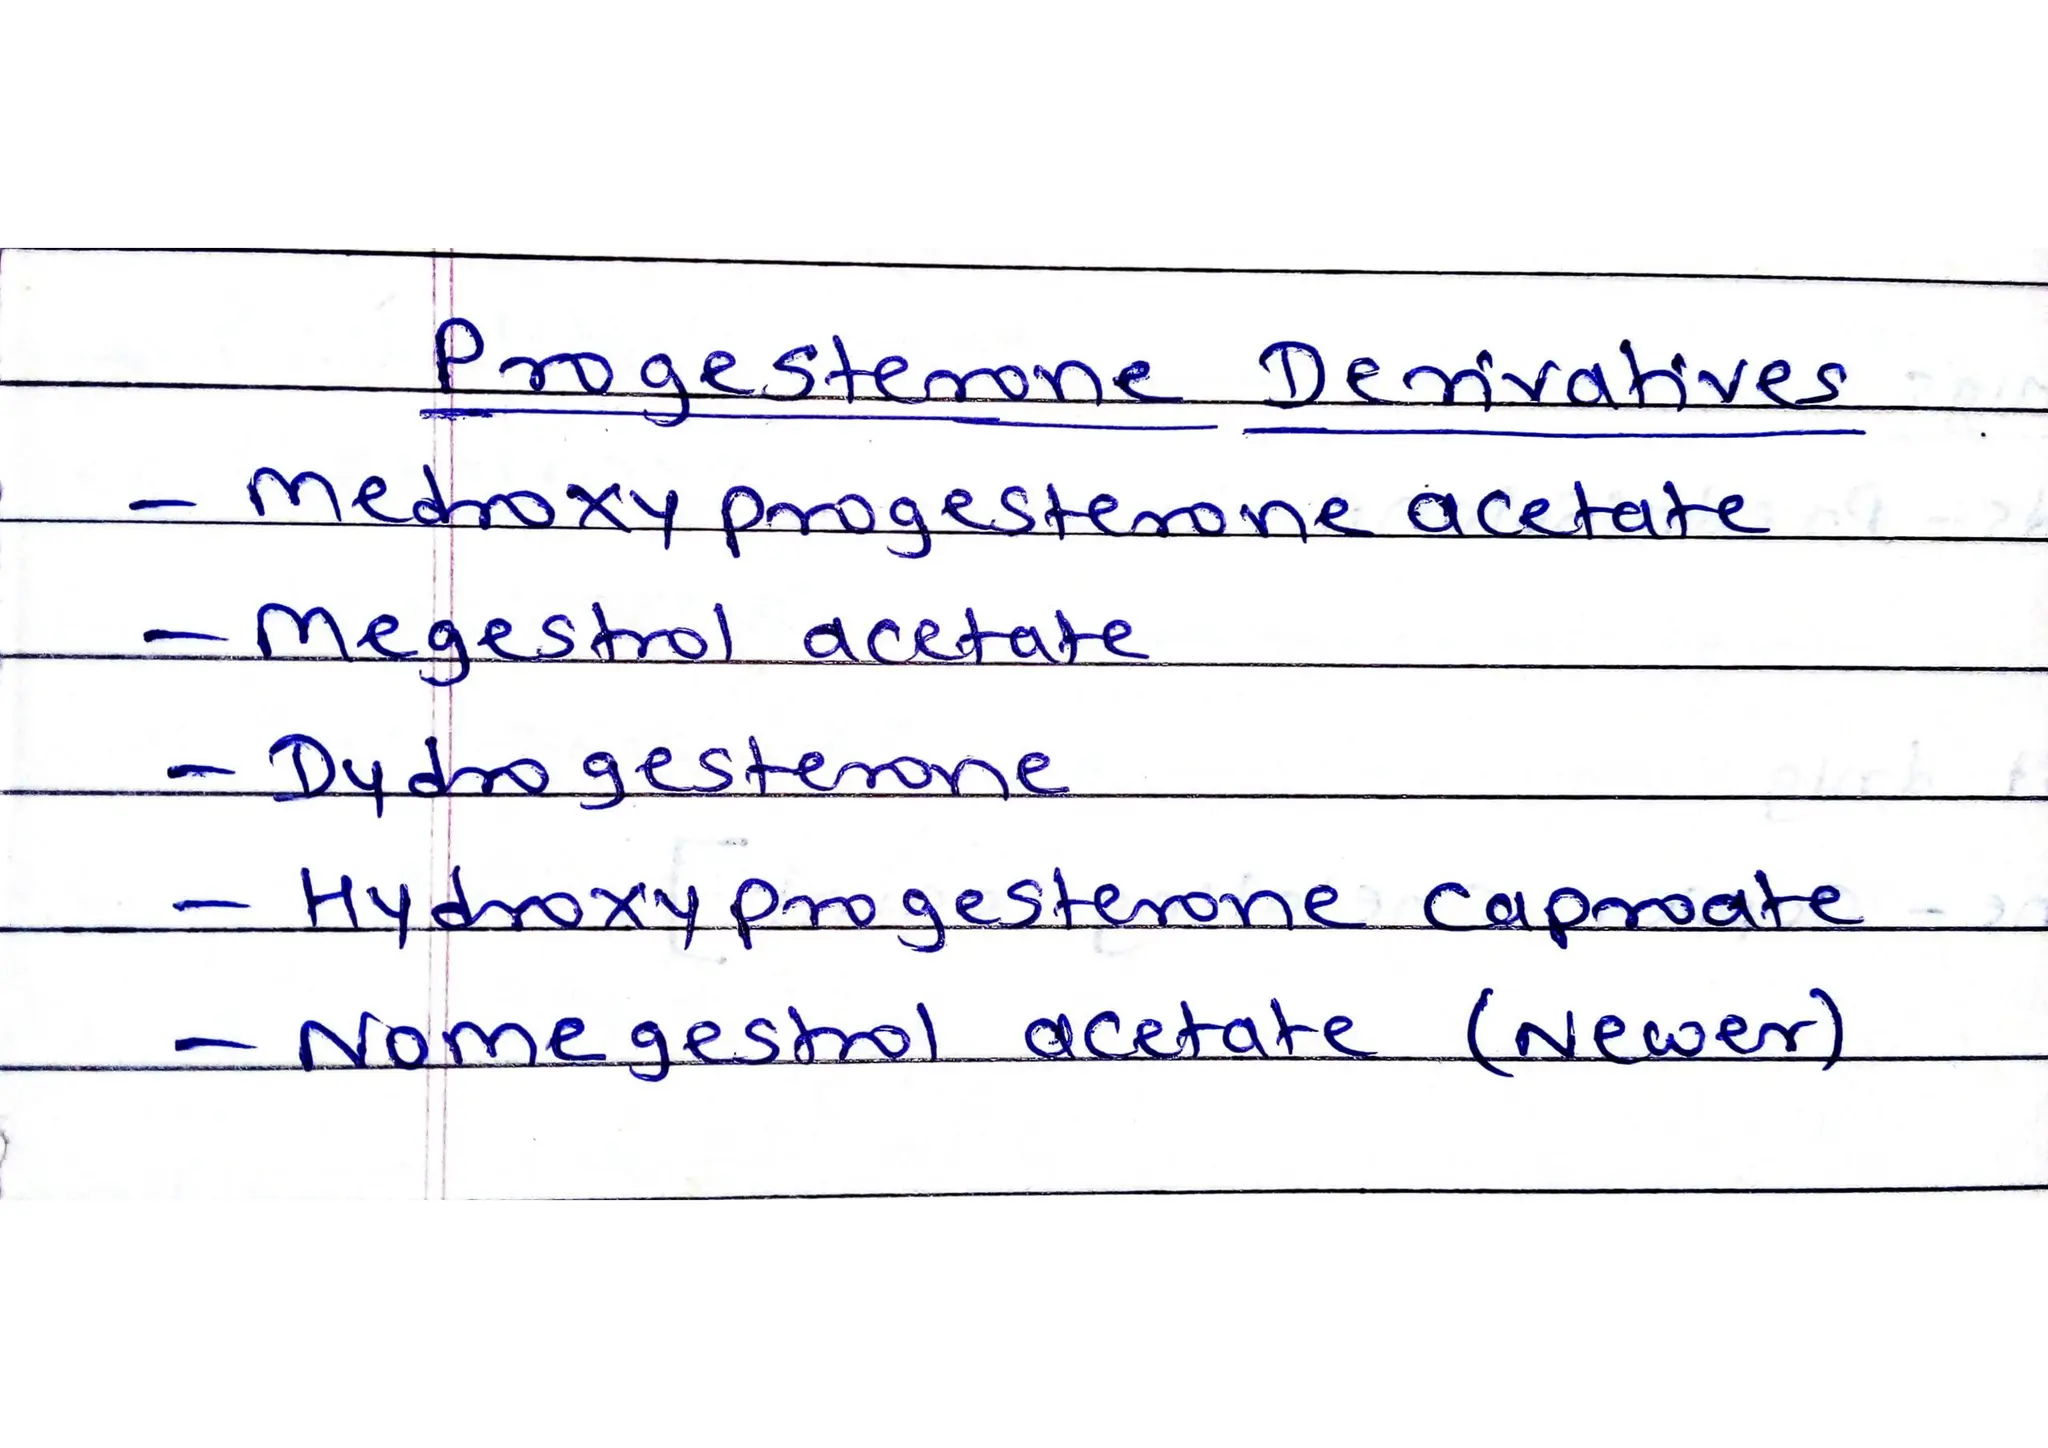 Progesterone Derivatives
- Medroxyprogesterone acetate
- Megestrol acetate
- Dydrogesterone
- Hydroxyprogesterone caproate
- Nomegestrol acetate (Newer)